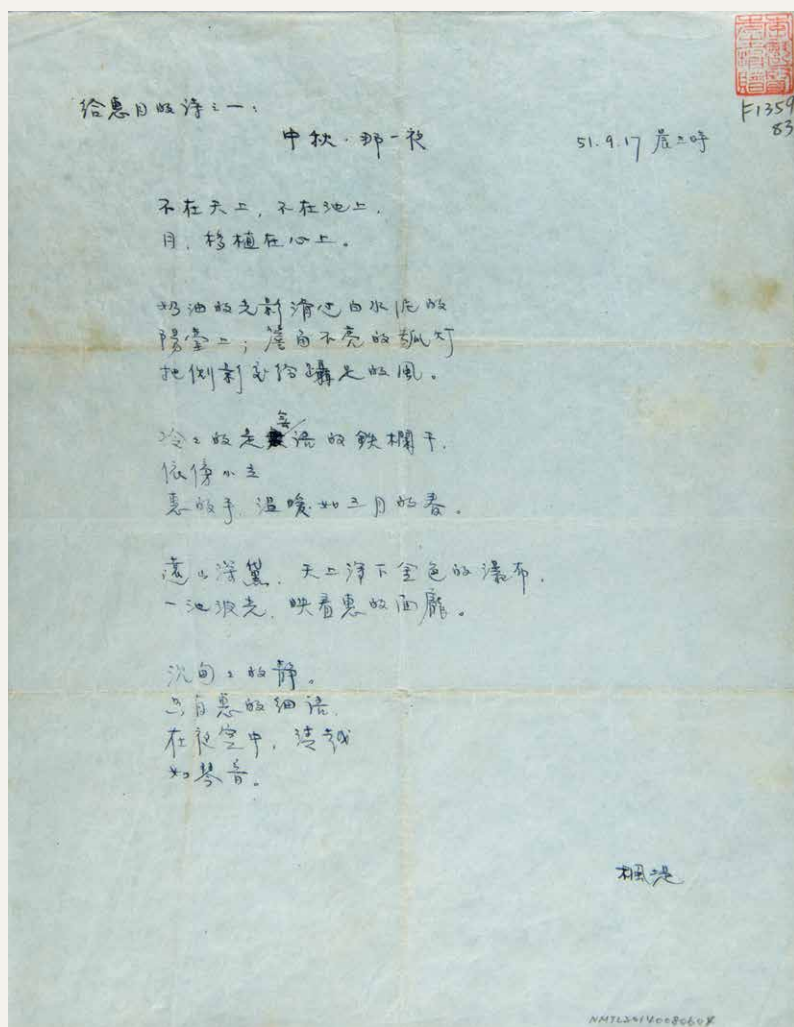 給惠的詩之一：
中秋·那一夜
51.9.17 晨二時
F1359
83
不在天上，不在池上，
月，移植在心上。
奶油的光影滑過白水泥的
陽臺上；簷角不亮的瓠灯
把倒影交給躡足的風。
冷冷的是無語的鉄欄干，
依傍小立
惠的手，溫暖如三月的春。
遠山深黛，天上瀉下金色的瀑布，
一池波光，映着惠的面龐。
沉甸甸的靜。
只有惠的細語，
在夜空中，清越
如琴音。
楓堤
NMTL20140080604